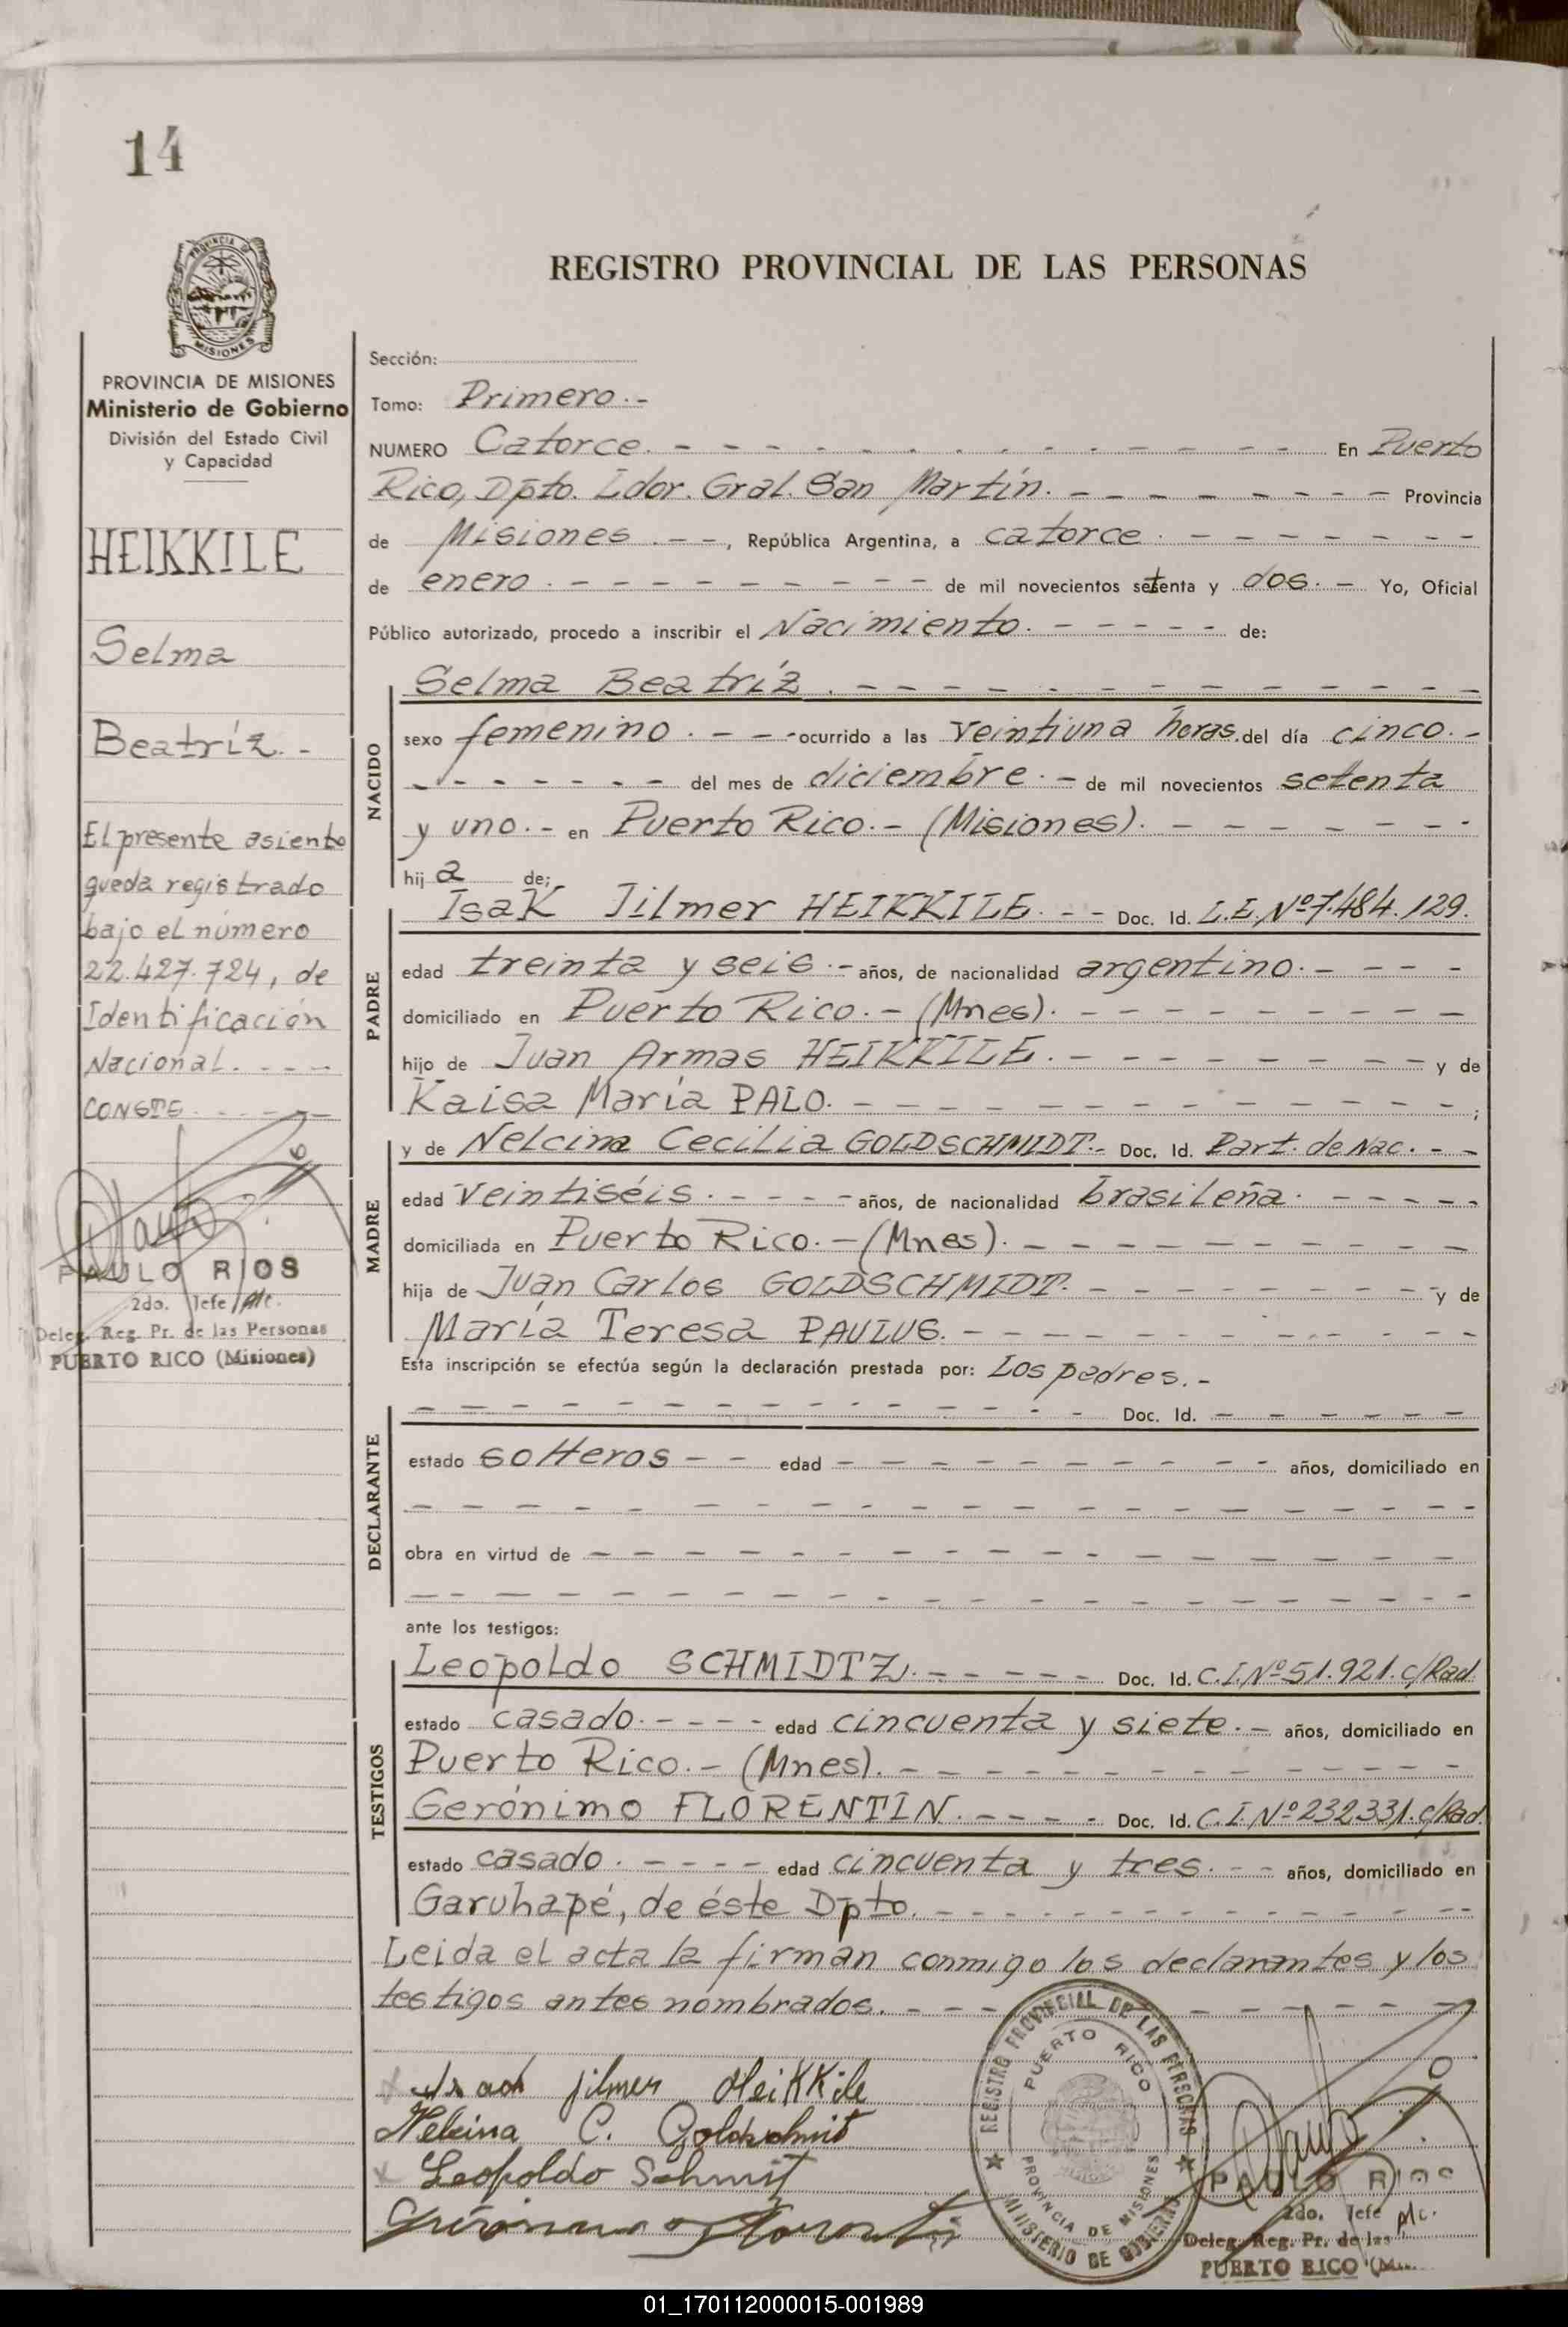 14
PROVINCIA DE
MISIONES
REGISTRO PROVINCIAL DE LAS PERSONAS
PROVINCIA DE MISIONES
Ministerio de Gobierno
División del Estado Civil
y Capacidad
HEIKKILE
Selma
Beatríz.-
El presente asiento
queda registrado
bajo el número
22.427.724, de
Identificación
Nacional. - - -
CONSTE. - - - -
PAULO RIOS
2do. Jefe
Deleg. Reg. Pr. de las Personas
PUERTO RICO (Misiones)
Sección:
Tomo: Primero.-
NUMERO Catorce. - - - En Puerto
Rico, Dpto. Ldor. Gral. San Martín. - - - Provincia
de Misiones. - -, República Argentina, a catorce. - - -
de enero. - - - de mil novecientos setenta y dos. - Yo, Oficial
Público autorizado, procedo a inscribir el Nacimiento. - - - de:
NACIDO
Selma Beatríz. - - -
sexo femenino. - - - ocurrido a las veintiuna horas. del día cinco. -
- - - del mes de diciembre. - de mil novecientos setenta
y uno. - en Puerto Rico. - (Misiones). - - -
hija de:
PADRE
Isak Jilmer HEIKKILE. - - Doc. Id. L.E. Nº 7.484.129.
edad treinta y seis. - años, de nacionalidad argentino. - - -
domiciliado en Puerto Rico. - (Mnes). - - -
hijo de Juan Armas HEIKKILE. - - - y de
Kaisa María PALO. - - - ;
MADRE
y de Nelcina Cecilia GOLDSCHMIDT.- Doc. Id. Part. de Nac. - -
edad veintiséis. - - - años, de nacionalidad brasileña. - - -
domiciliada en Puerto Rico. - (Mnes). - - -
hija de Juan Carlos GOLDSCHMIDT. - - - y de
María Teresa PAULUS. - - -
Esta inscripción se efectúa según la declaración prestada por: Los padres. -
DECLARANTE
- - - Doc. Id. - - -
estado solteros - - edad - - - años, domiciliado en
- - -
obra en virtud de - - -
- - -
ante los testigos:
TESTIGOS
Leopoldo SCHMIDTZ. - - - Doc. Id. C.I. Nº 51.921. c/Rad.
estado casado. - - - edad cincuenta y siete. - años, domiciliado en
Puerto Rico. - (Mnes). - - -
Gerónimo FLORENTIN. - - - Doc. Id. C.I. Nº 232331. c/Rad.
estado casado. - - - edad cincuenta y tres. - - años, domiciliado en
Garuhapé, de éste Dpto. - - -
Leida el acta la firman conmigo los declarantes y los
testigos antes nombrados. - - -
Jilmer Heikkile
Nelcina C. Goldschmit
Leopoldo Schmit
REGISTRO PROVINCIAL DE LAS PERSONAS
PUERTO RICO
PROVINCIA DE MISIONES
MINISTERIO DE GOBIERNO
PAULO RIOS
2do. Jefe
Deleg. Reg. Pr. de las
PUERTO RICO
01_170112000015-001989